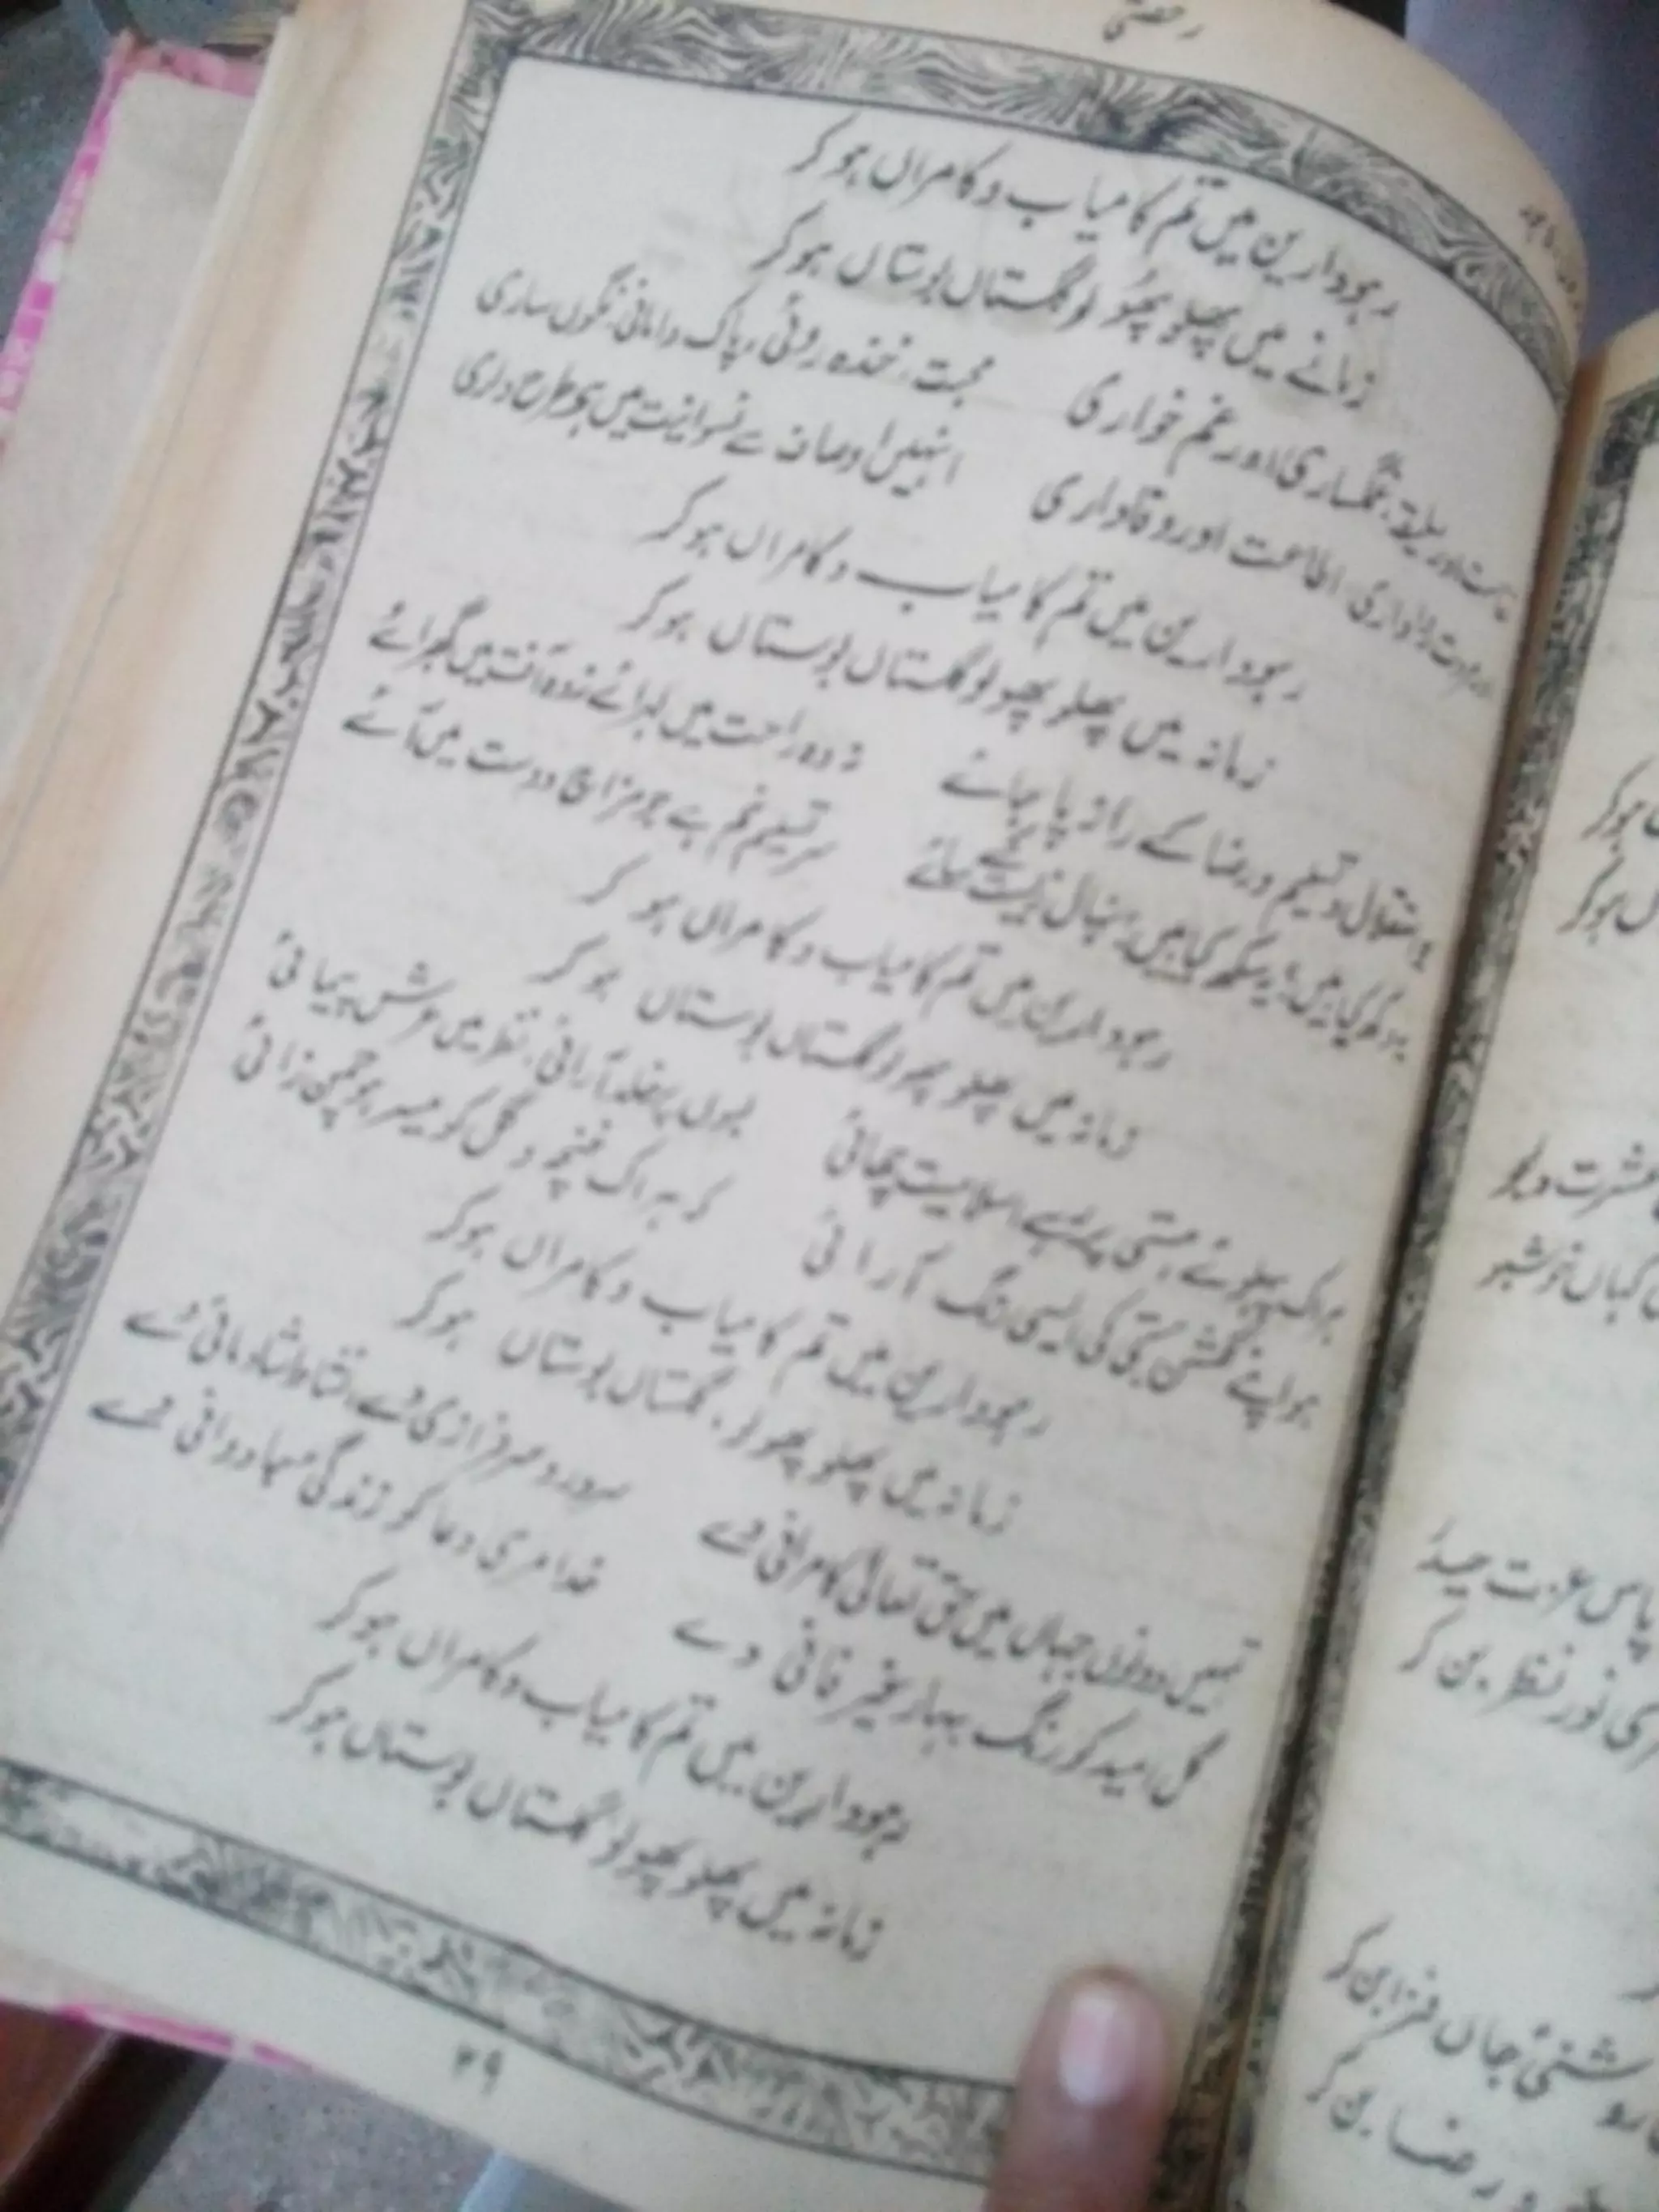 رخصتی
رہو دارین میں تم کامیاب و کامراں ہو کر
زمانے میں پھلو پھُولو گلستاں بوستاں ہو کر
سلیقہ، غمگساری اور غم خواری محبت، خندہ روئی، پاک دامانی، نگوں ساری
رواداری اطاعت اور وفاداری انہیں اوصاف سے نسوانیت میں ہر طرح داری
رہو دارین میں تم کامیاب و کامراں ہو کر
زمانہ میں پھلو پھولو گلستاں بوستاں ہو کر
استقلال و تسلیم و رضا کے راز پا جائے نہ وہ راحت میں لہرائے نہ وہ آفت میں گھبرائے
سر تسلیم خم ہے جو مزاج دوست میں آئے
رہو دارین میں تم کامیاب و کامراں ہو کر
زمانہ میں پھلو پھولو گلستاں بوستاں ہو کر
ہر اک پہلوئے ہستی پر رہے اسلامیت چھائی لبوں پر خلد آرائی، نظر میں عرش پیمائی
ہو اپنے گلشن ہستی کی ایسی رنگ آرائی کہ ہر اک غنچہ و گل کو میسر ہو چمن زائی
رہو دارین میں تم کامیاب و کامراں ہو کر
زمانہ میں پھلو پھولو، گلستاں بوستاں ہو کر
تمہیں دونوں جہاں میں حق تعالیٰ کامرانی دے سرور و سرفرازی دے، نشاط و شادمانی دے
گل امید کو رنگ بہار غیر فانی دے خدا مری دعا کو زندگی جاودانی دے
رہو دارین میں تم کامیاب و کامراں ہو کر
زمانہ میں پھلو پھولو گلستاں بوستاں ہو کر
۲۹
ہو کر
ہو کر
عشرت و
کہاں خوشبو
پاس عزت
نور نظر بن کر
روشنی جاں فزا بن کر
و رضا بن کر